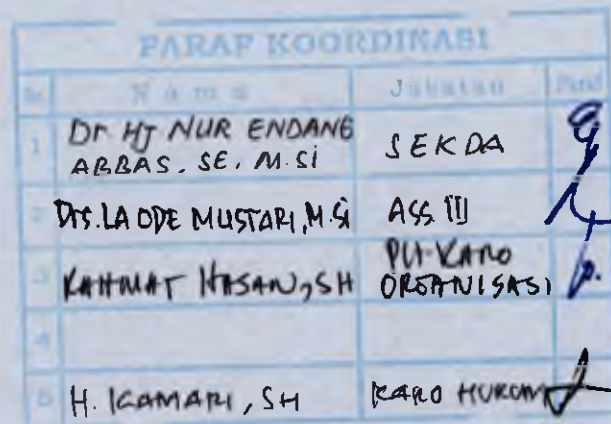 PARAF KOORDINASI
No Nama Jabatan Paraf
1 Dr Hj NUR ENDANG ABBAS. SE. M.Si SEKDA
2 Drs. LA ODE MUSTARI, M.Si ASS III
3 RAHMAT HASAN, SH Plt. KARO ORGANISASI
4
5 H. KAMARI, SH KARO HUKUM